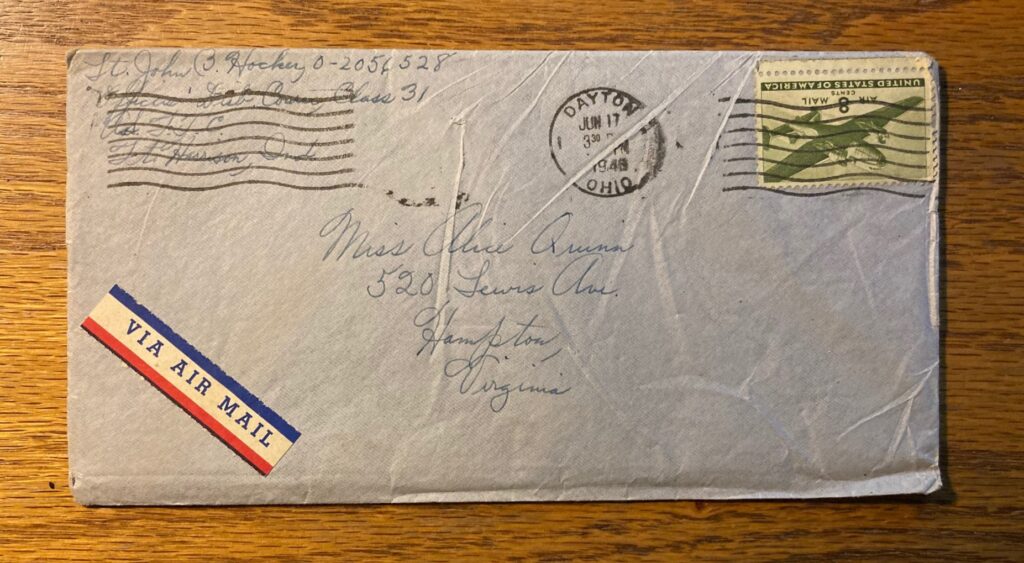 Lt. John B. Hocker, O-2056528
Officers' Disb. Course, Class 31
Ft. Harrison, Ind.
DAYTON
JUN 17
3 30 PM
OHIO
UNITED STATES OF AMERICA
AIR MAIL
8
CENTS
Miss Alice Quinn
520 Lewis Ave.
Hampton,
Virginia
VIA AIR MAIL